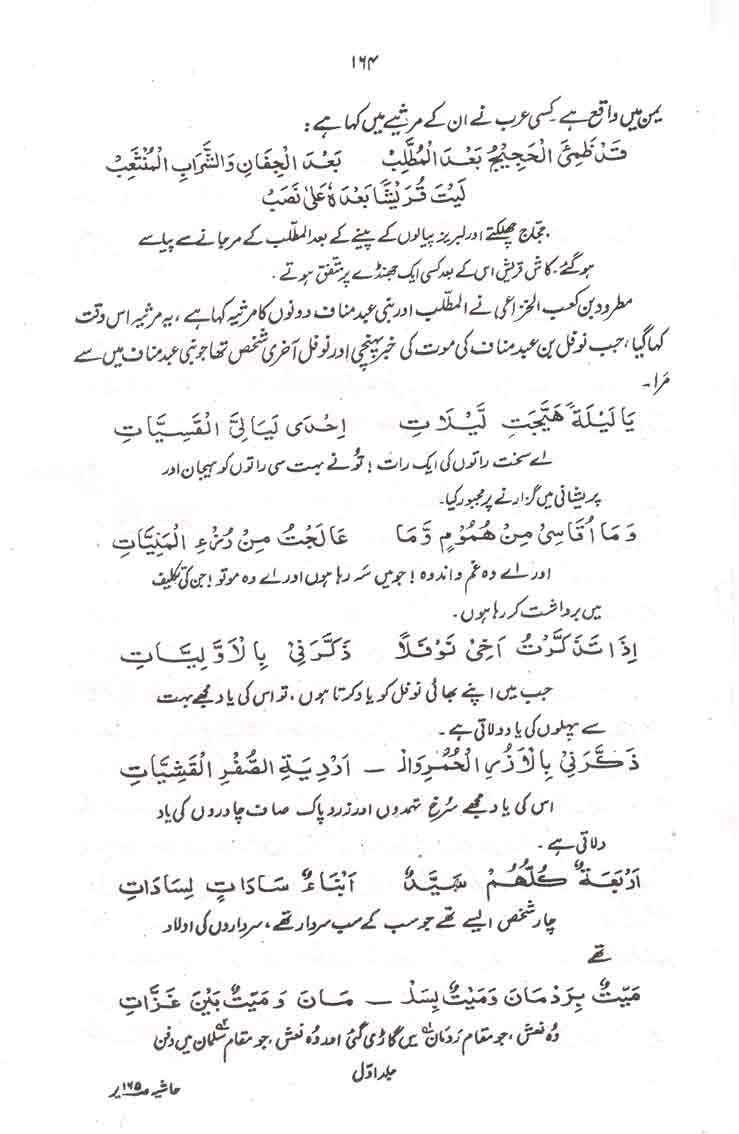 ۱۶۴
یمن میں واقع ہے۔ کسی عرب نے ان کے مرثیے میں کہا ہے:
قَدْ ظَمِئَ الْحَجِیْجُ بَعْدَ الْمُطَّلِبْ بَعْدَ الْجِفَانِ وَالشَّرَابِ الْمُنْثَعِبْ
لَیْتَ قُرَیْشًا بَعْدَہٗ عَلٰی نَصَبْ
حجاج چھلکتے اور لبریز پیالوں کے پینے کے بعد المطلب کے مرجانے سے پیاسے
ہوگئے۔ کاش قریش اس کے بعد کسی ایک جھنڈے پر متفق ہوتے۔
مطرود بن کعب الخزاعی نے المطلب اور بنی عبد مناف دونوں کا مرثیہ کہا ہے، یہ مرثیہ اس وقت
کہا گیا، جب نوفل بن عبد مناف کی موت کی خبر پہنچی اور نوفل آخری شخص تھا جو بنی عبد مناف میں سے
مرا۔
یَا لَیْلَةً ھَیَّجَتِ لَیْلَاتِ اِحْدٰی لَیَالِیَّ الْقَسِیَّاتِ
اے سخت راتوں کی ایک رات! تُو نے بہت سی راتوں کو ہیجان اور
پریشانی میں گزارنے پر مجبور کیا۔
وَمَا اُقَاسِیْ مِنْ ھُمُوْمٍ وَّمَا عَالَجْتُ مِنْ رُزْءِ الْمَنِیَّاتِ
اور اے وہ غم و اندوہ! جو میں سَہ رہا ہوں اور اے وہ موتو! جن کی تکلیف
میں برداشت کر رہا ہوں۔
اِذَا تَذَکَّرْتُ اَخِیْ نَوْفَلًا ذَکَّرَنِیْ بِالْاَوَّلِیَّاتِ
جب میں اپنے بھائی نوفل کو یاد کرتا ہوں، تو اس کی یاد مجھے بہت
سے پہلوں کی یاد دلاتی ہے۔
ذَکَّرَنِیْ بِالْاُزُرِ الْحُمُرِ وَالْ ــ اَرْدِیَةِ الصُّفْرِ الْقَشِیْبَاتِ
اس کی یاد مجھے سُرخ تہمدوں اور زرد پاک صاف چادروں کی یاد
دلاتی ہے۔
اَرْبَعَةٌ کُلُّھُمْ سَیِّدٌ اَبْنَاءُ سَادَاتٍ لِسَادَاتِ
چار شخص ایسے تھے جو سب کے سب سردار تھے، سرداروں کی اولاد
تھے
مَیْتٌ بِرَدْمَانَ وَمَیْتٌ بِسَلْ ــ مَانَ وَمَیْتٌ بَیْنَ غَزَّاتِ
وہ نعش، جو مقام رَدمان میں گاڑی گئی اور وہ نعش، جو مقام سَلمان میں دفن
جلد اوّل
حاشیہ صـ۱۶۵ پر